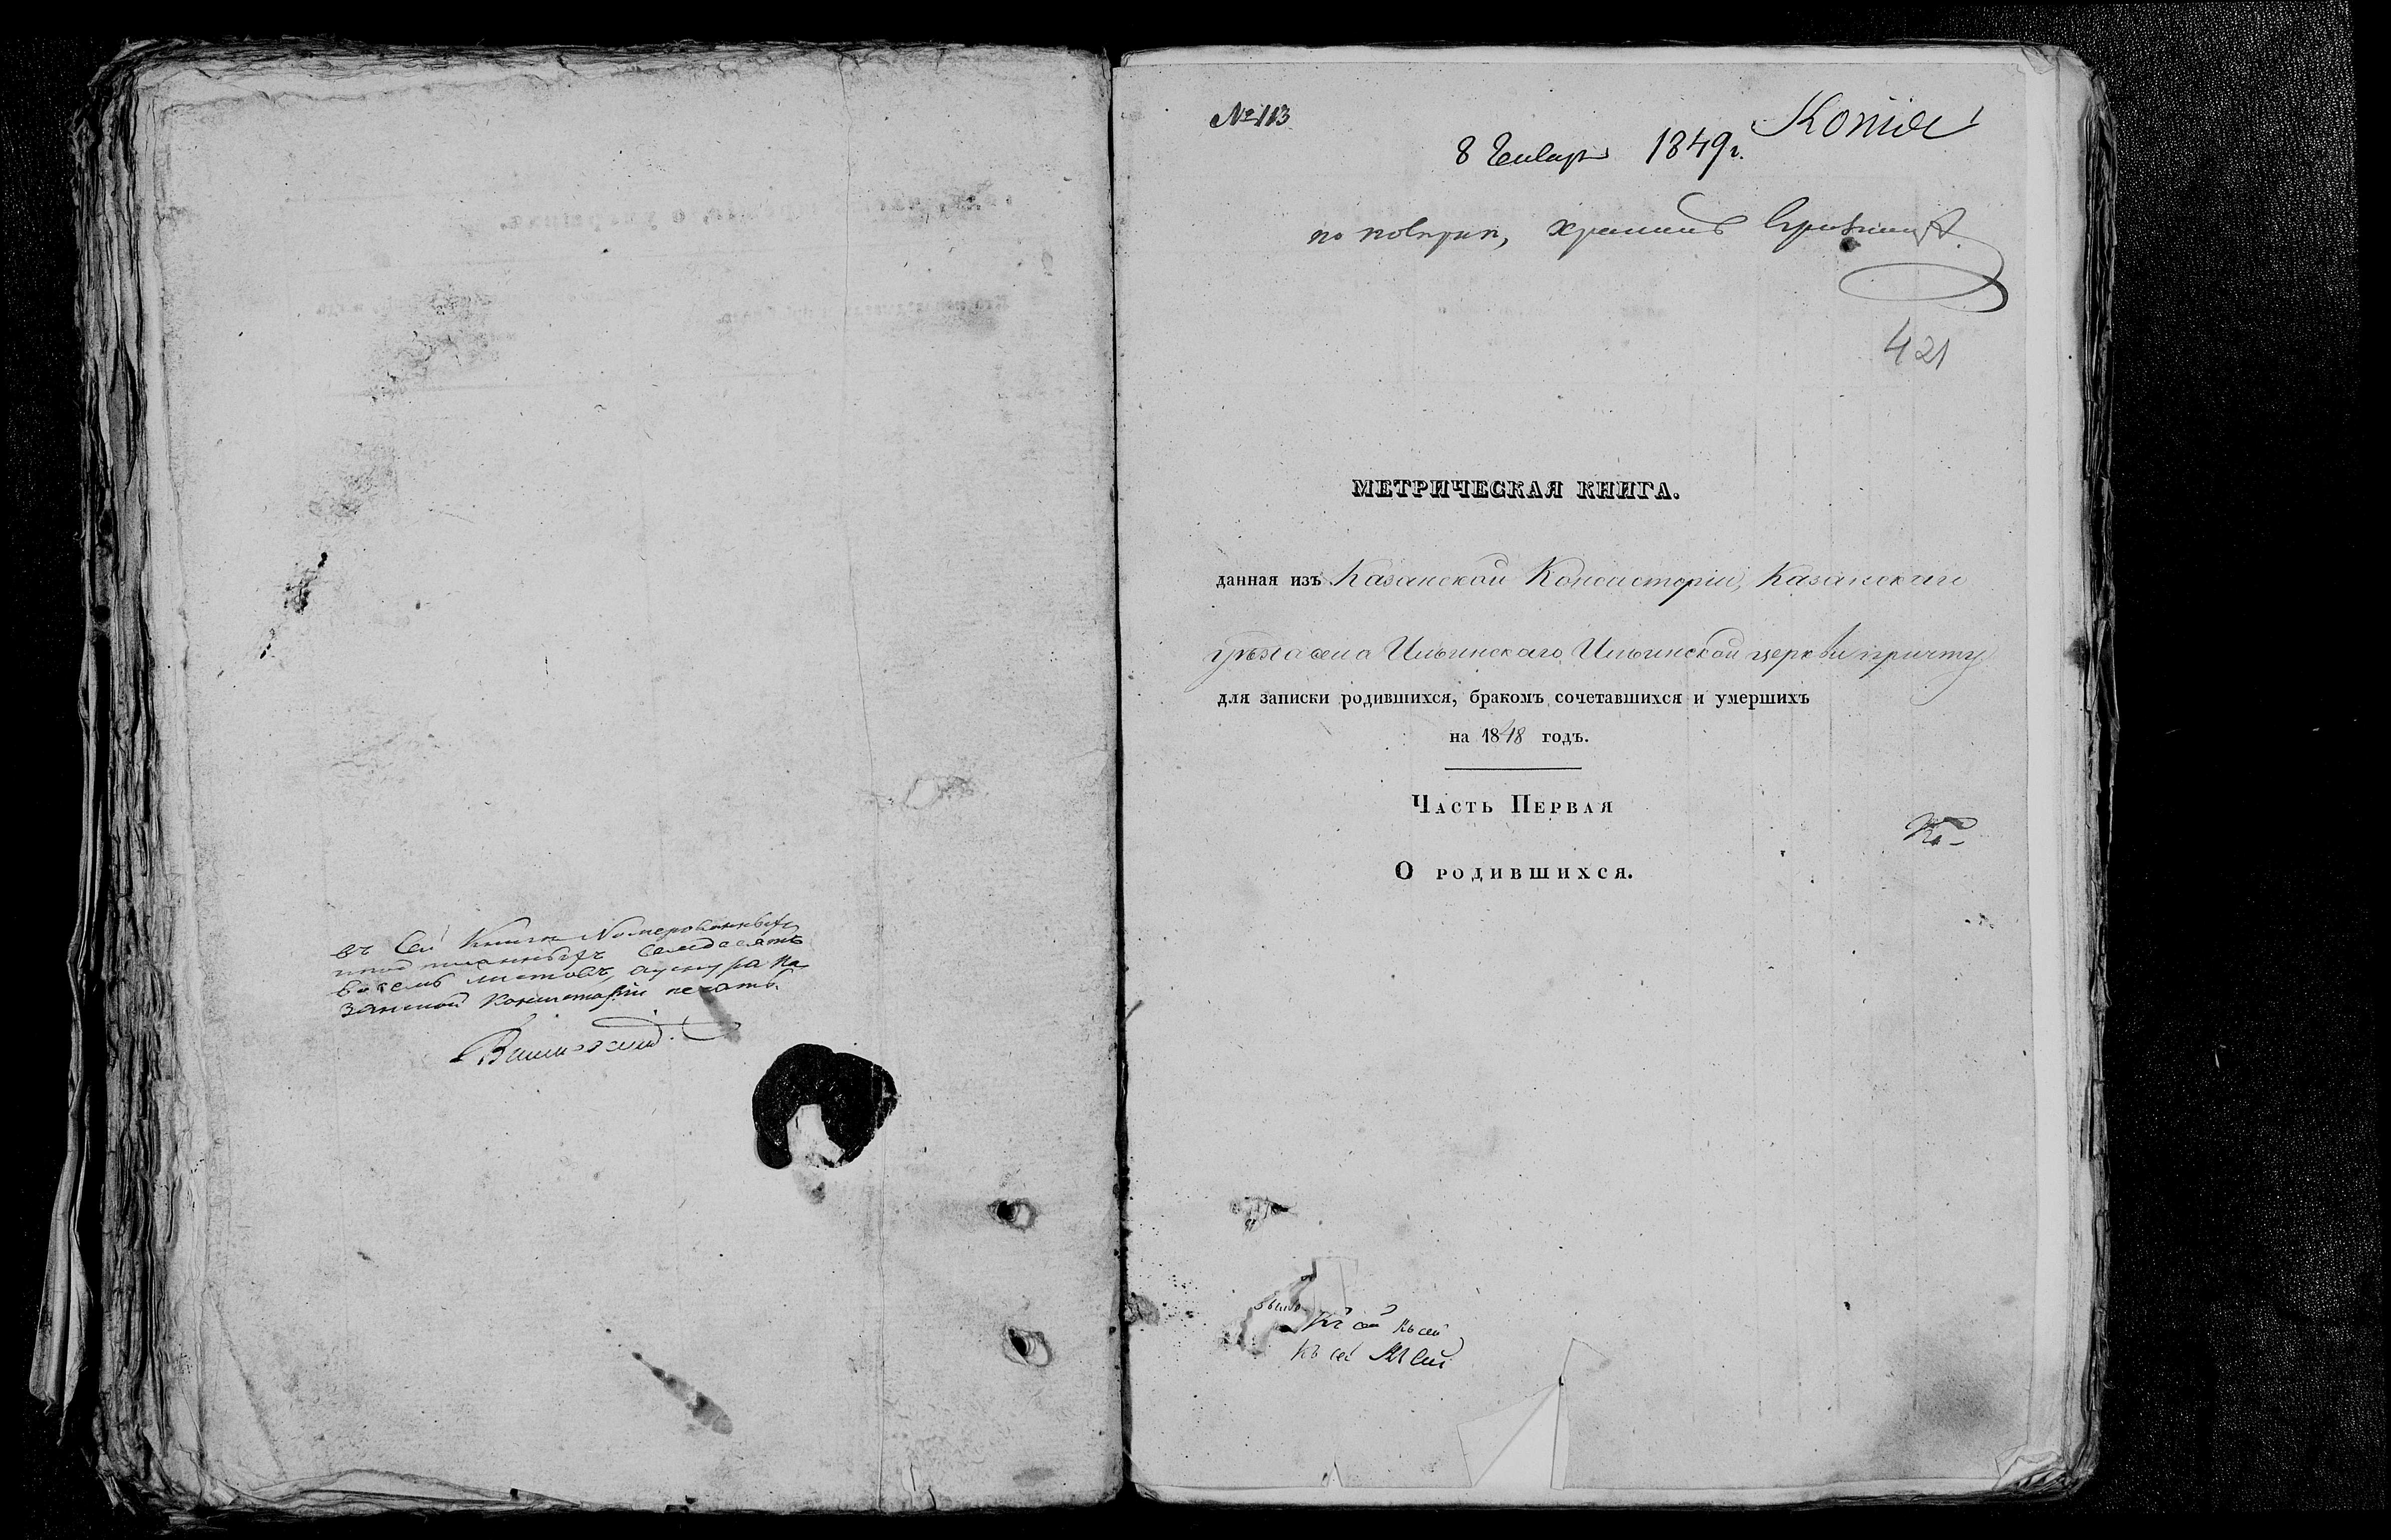 въ сей Книгѣ Номерованныхъ
семдесятъ
восемь листовъ, а у шнура Ка
занской Консисторіи печать.
№ 113
Копія
8 Генваря 1849 г.
по повѣркѣ, хранить
421
МЕТРИЧЕСКАЯ КНИГА.
данная изъ Казанской Консисторіи, Казанскаго
уѣзда села Ильинскаго Ильинской церкви причту
для записки родившихся, бракомъ сочетавшихся и умершихъ
на 1848 годъ.
Часть Первая
О родившихся.
Къ сей Къ сей
Къ сей